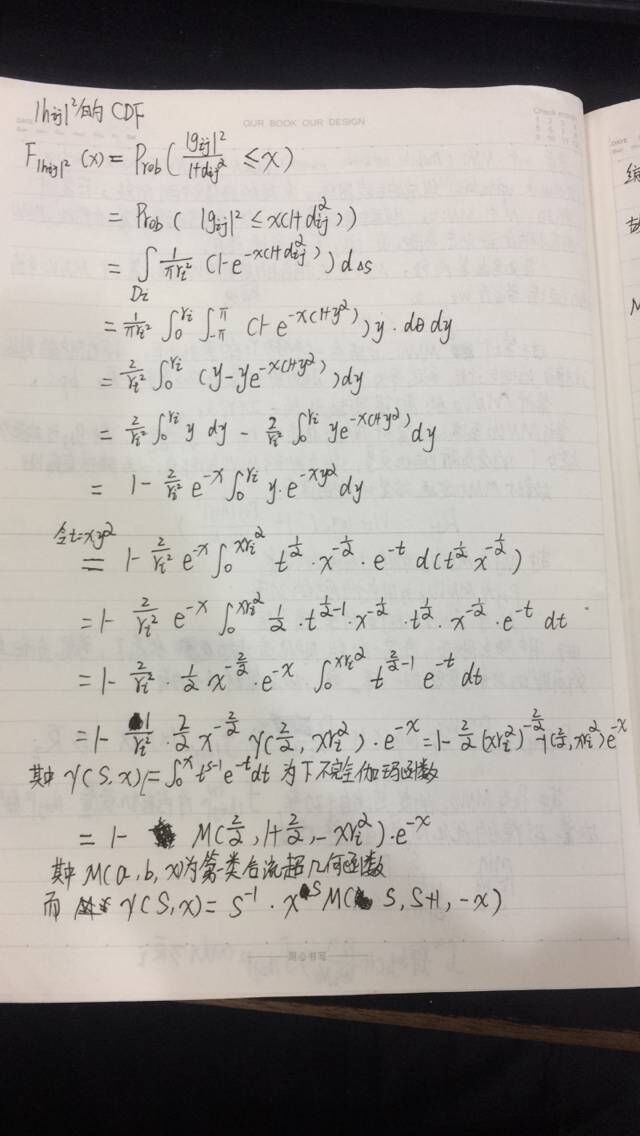 |h_{ij}|²的 CDF
OUR BOOK OUR DESIGN
F_{|h_{ij}|²}(x) = Prob( |g_{ij}|² / (1+d_{ij}²) ≤ x )
= Prob( |g_{ij}|² ≤ x(1+d_{ij}²) )
= ∫_{D_i} 1/(πr_i²) (1-e^{-x(1+d_{ij}²)}) dΔs
= 1/(πr_i²) ∫_0^{r_i} ∫_{-π}^{π} (1-e^{-x(1+y²)}) y·dθ dy
= 2/r_i² ∫_0^{r_i} (y-ye^{-x(1+y²)}) dy
= 2/r_i² ∫_0^{r_i} y dy - 2/r_i² ∫_0^{r_i} ye^{-x(1+y²)} dy
= 1 - 2/r_i² e^{-x} ∫_0^{r_i} y·e^{-xy²} dy
令t=xy² = 1 - 2/r_i² e^{-x} ∫_0^{xr_i²} t^{1/2}·x^{-1/2}·e^{-t} d(t^{1/2} x^{-1/2})
= 1 - 2/r_i² e^{-x} ∫_0^{xr_i²} 1/2·t^{1/2-1}·x^{-1/2}·t^{1/2}·x^{-1/2}·e^{-t} dt
= 1 - 2/r_i²·1/2 x^{-2/2}·e^{-x} ∫_0^{xr_i²} t^{2/2-1} e^{-t} dt
= 1 - 1/r_i²·2/2 x^{-2/2} γ(2/2, xr_i²)·e^{-x} = 1 - 2/2 (xr_i²)^{-2/2} γ(2/2, xr_i²) e^{-x}
其中 γ(S,x) = ∫_0^x t^{s-1} e^{-t} dt 为下不完全伽玛函数
= 1 - M(2/2, 1+2/2, -xr_i²)·e^{-x}
其中 M(a,b,x)为第一类合流超几何函数
而 γ(S,x) = S^{-1}·x^S M(S, S+1, -x)
用心书写